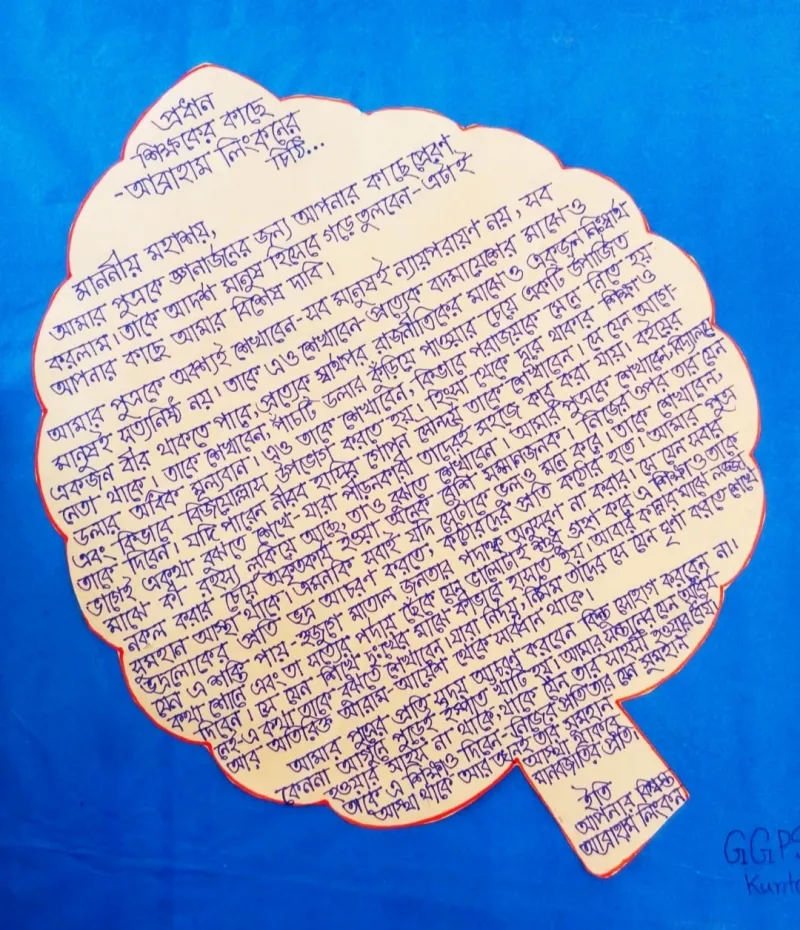 প্রধান
শিক্ষকের কাছে
-আব্রাহাম লিংকনের
চিঠি...
মাননীয় মহাশয়,
আমার পুত্রকে জ্ঞানার্জনের জন্য আপনার কাছে প্রেরণ
করলাম। তাকে আদর্শ মানুষ হিসেবে গড়ে তুলবেন - এটাই
আপনার কাছে আমার বিশেষ দাবি।
আমার পুত্রকে অবশ্যই শেখাবেন - সব মানুষই ন্যায়পরায়ণ নয়, সব
মানুষই সত্যনিষ্ঠ নয়। তাকে এও শেখাবেন প্রত্যেক বদমায়েশের মাঝেও
একজন বীর থাকতে পারে, প্রত্যেক স্বার্থপর রাজনীতিকের মাঝেও একজন নিঃস্বার্থ
নেতা থাকে। তাকে শেখাবেন, পাঁচটি ডলার কুড়িয়ে পাওয়ার চেয়ে একটি উপার্জিত
ডলার অধিক মূল্যবান। এও তাকে শেখাবেন, কিভাবে পরাজয়কে মেনে নিতে হয়
এবং কিভাবে বিজয়োল্লাস উপভোগ করতে হয়। হিংসা থেকে দূরে থাকার শিক্ষাও
তাকে দিবেন। যদি পারেন নীরব হাসির গোপন সৌন্দর্য তাকে শেখাবেন। সে যেন আগে-
ভাগেই একথা বুঝতে শেখে যারা পীড়নকারী তাদেরই সহজে কাবু করা যায়। বইয়ের
মাঝে কী রহস্য লুকিয়ে আছে, তাও বুঝতে শেখাবেন। আমার পুত্রকে শেখাবেন, বিদ্যালয়ে
নকল করার চেয়ে অকৃতকার্য হওয়া অনেক বেশি সম্মানজনক। নিজের ওপর তার যেন
সুমহান আস্থা থাকে। এমনকি সবাই যদি সেটাকে ভুলও মনে করে। তাকে শেখাবেন,
ভদ্রলোকের প্রতি ভদ্র আচরণ করতে, কঠোরদের প্রতি কঠোর হতে। আমার পুত্র
যেন এ শক্তি পায় - হুজুগে মাতাল জনতার পদাঙ্ক অনুসরণ না করার। সে যেন সবার
কথা শোনে এবং তা সত্যের পর্দায় ছেঁকে যেন ভালোটাই শুধু গ্রহণ করে এ শিক্ষাও তাকে
দিবেন। সে যেন শিখে দুঃখের মাঝে কীভাবে হাসতে হয়। আবার কান্নার মাঝে লজ্জা
নেই এ কথা তাকে বুঝতে শেখাবেন। যারা নির্দয়, নির্মম তাদের সে যেন ঘৃণা করতে শেখে
আর অতিরিক্ত আরাম-আয়েশ থেকে সাবধান থাকে।
আমার পুত্রের প্রতি সদয় আচরণ করবেন কিন্তু সোহাগ করবেন না।
কেননা আগুনে পুড়েই ইস্পাত খাঁটি হয়। আমার সন্তানের যেন অধৈর্য
হওয়ার সাহস না থাকে, থাকে যেন তার সাহসী হওয়ার ধৈর্য।
তাকে এ শিক্ষাও দিবেন - নিজের প্রতি তার যেন সুমহান
আস্থা থাকে আর তখনই তার সুমহান
আস্থা থাকবে
মানবজাতির প্রতি।
ইতি
আপনার বিশ্বস্ত
আব্রাহাম লিংকন।